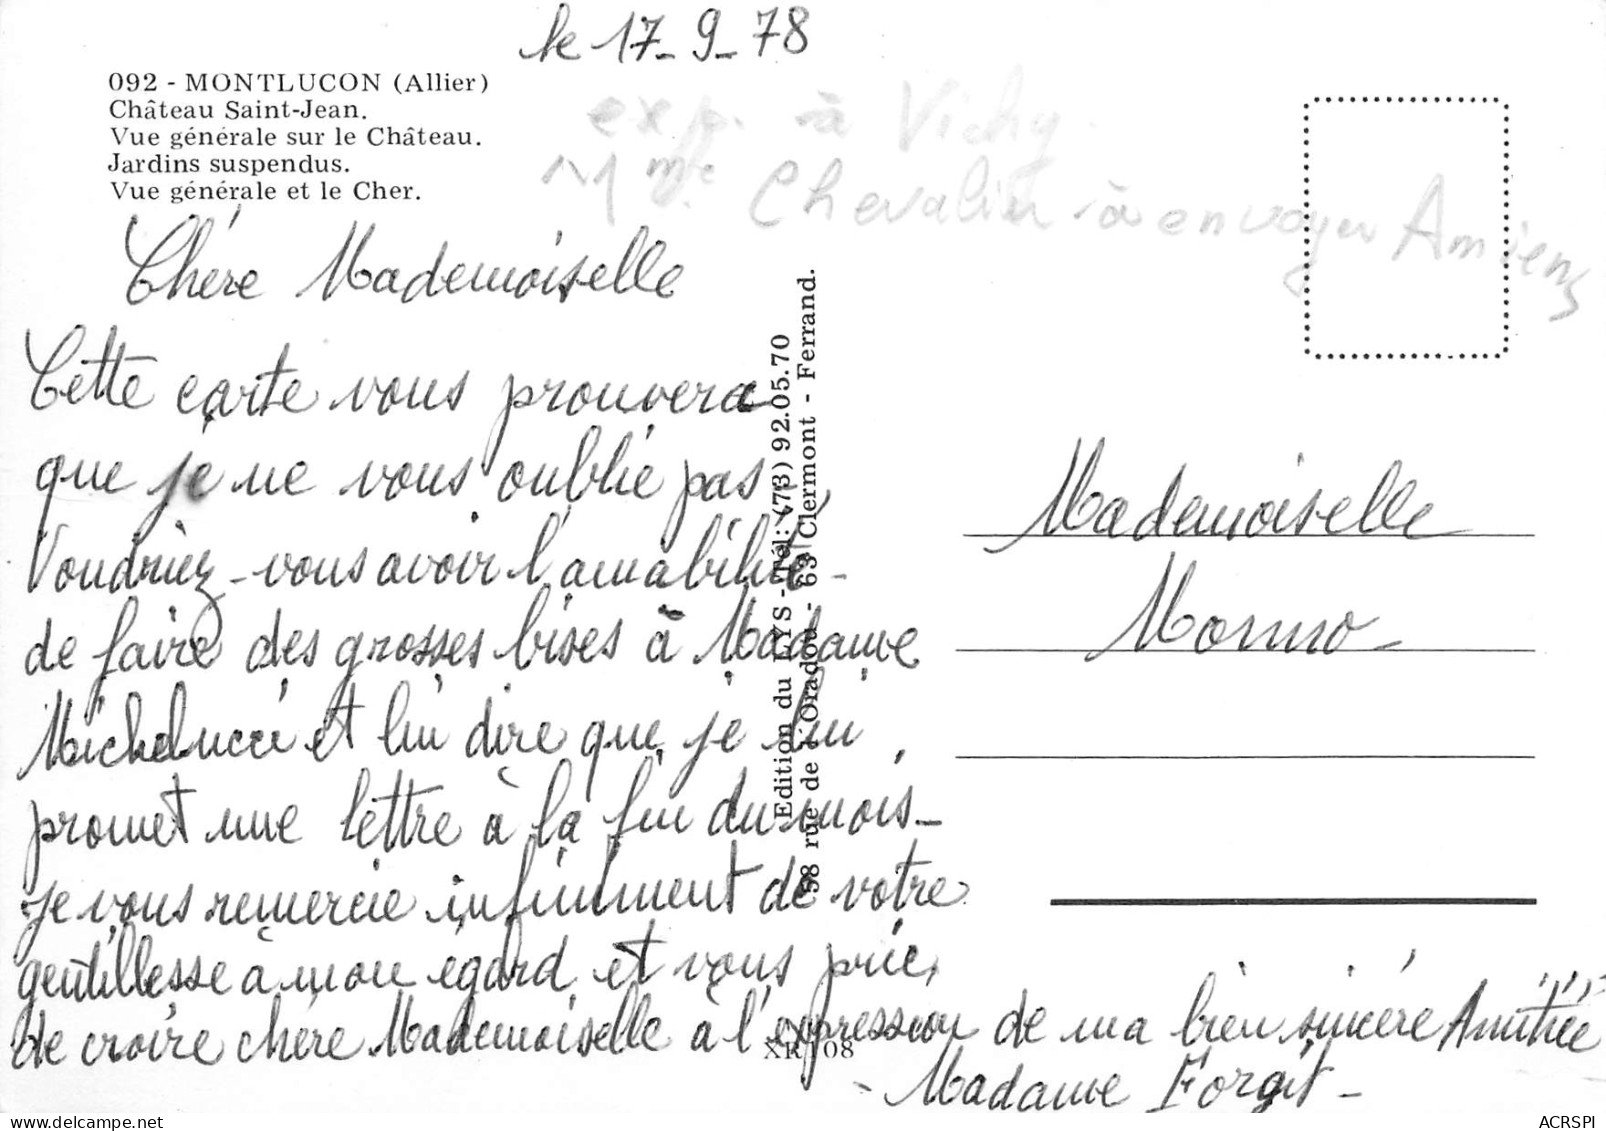 le 17-9-78
092 - MONTLUCON (Allier)
Château Saint-Jean.
Vue générale sur le Château.
Jardins suspendus.
Vue générale et le Cher.
exp. à Vichy
Mme Chevalier à envoyer Amiens
Chére Mademoiselle
Cette carte vous prouvera
que je ne vous oublie pas,
Voudriez-vous avoir l'amabilité-
de faire des grosses bises à Madame
Michelucci et lui dire que je lui
promet une lettre à la fin du mois-
je vous remercie infiniment de votre
gentillesse à mon égard et vous prie,
de croire chére Mademoiselle à l'expression de ma bien sincére Amitiée
- Madame Forgit -
Edition du LYS - Tél: (73) 92.05.70
58 rue de l'Oradou - 63 Clermont - Ferrand.
XR 108
Mademoiselle
Monno-
ACRSPI